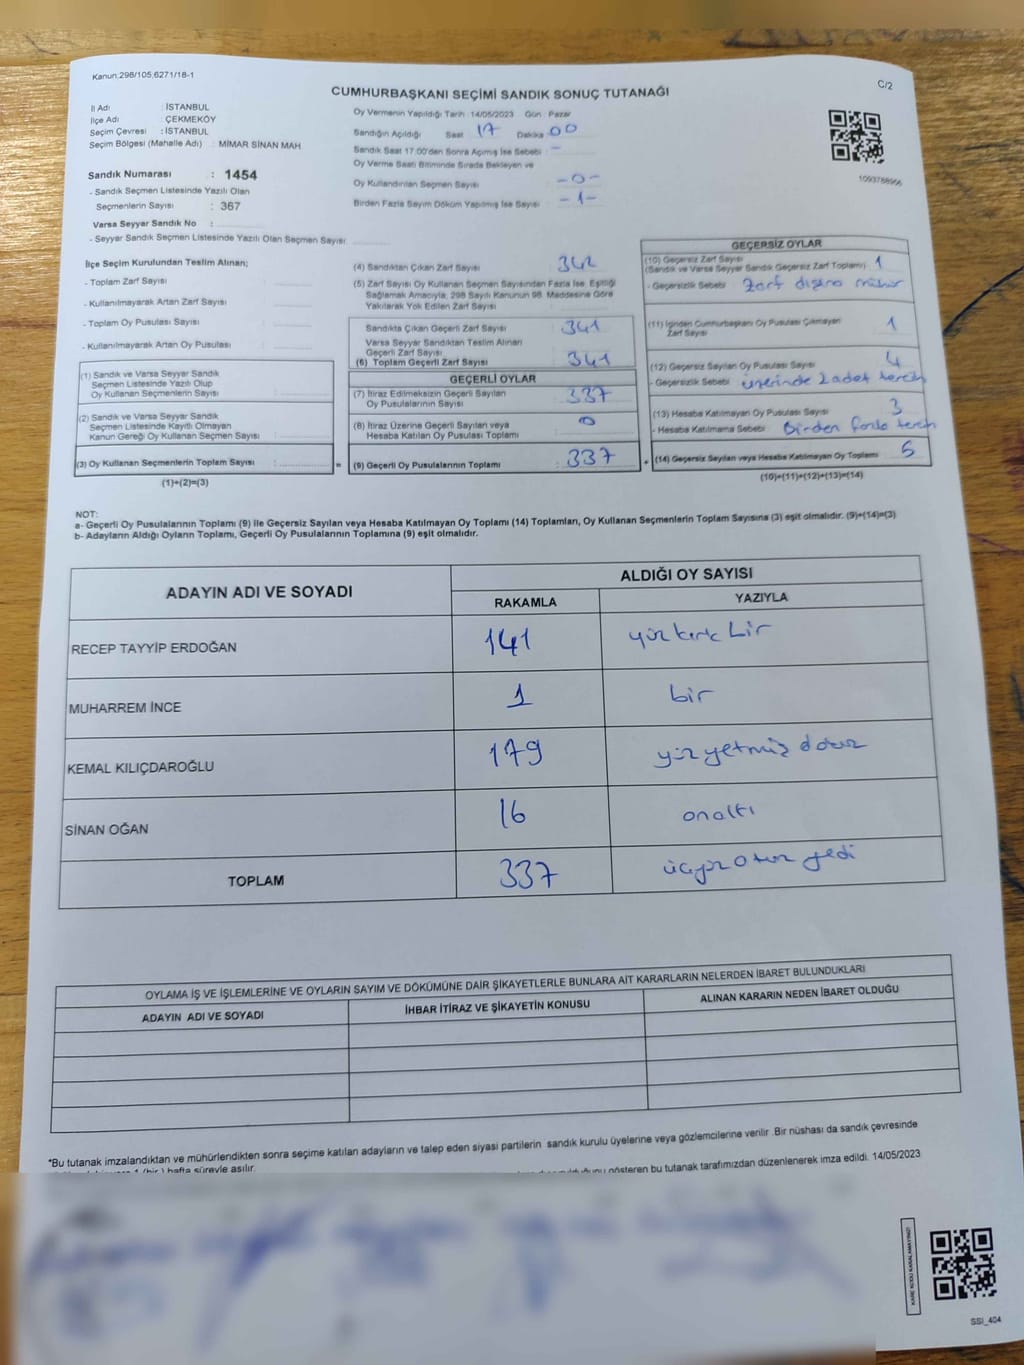 Kanun.298/105,6271/18-1
C/2
CUMHURBAŞKANI SEÇİMİ SANDIK SONUÇ TUTANAĞI
İl Adı : İSTANBUL
İlçe Adı : ÇEKMEKÖY
Seçim Çevresi : İSTANBUL
Seçim Bölgesi (Mahalle Adı) : MİMAR SİNAN MAH
Sandık Numarası : 1454
- Sandık Seçmen Listesinde Yazılı Olan
Seçmenlerin Sayısı : 367
Varsa Seyyar Sandık No :
- Seyyar Sandık Seçmen Listesinde Yazılı Olan Seçmen Sayısı:
Oy Vermenin Yapıldığı Tarih 14/05/2023 Gün : Pazar
Sandığın Açıldığı Saat 17 Dakika 00
Sandık Saat 17:00'den Sonra Açımış İse Sebebi : -
Oy Verme Saati Bitiminde Sırada Bekleyen ve
Oy Kullandırılan Seçmen Sayısı -0-
Birden Fazla Sayım Döküm Yapılmış İse Sayısı -1-
1093788966
İlçe Seçim Kurulundan Teslim Alınan;
- Toplam Zarf Sayısı :
- Kullanılmayarak Artan Zarf Sayısı :
- Toplam Oy Pusulası Sayısı :
- Kullanılmayarak Artan Oy Pusulası :
(1) Sandık ve Varsa Seyyar Sandık
Seçmen Listesinde Yazılı Olup
Oy Kullanan Seçmenlerin Sayısı :
(2) Sandık ve Varsa Seyyar Sandık
Seçmen Listesinde Kayıtlı Olmayan
Kanun Gereği Oy Kullanan Seçmen Sayısı :
(3) Oy Kullanan Seçmenlerin Toplam Sayısı : =
(1)+(2)=(3)
(4) Sandıktan Çıkan Zarf Sayısı : 342
(5) Zarf Sayısı Oy Kullanan Seçmen Sayısından Fazla İse, Eşitliği
Sağlamak Amacıyla, 298 Sayılı Kanunun 98. Maddesine Göre
Yakılarak Yok Edilen Zarf Sayısı :
Sandıkta Çıkan Geçerli Zarf Sayısı : 341
Varsa Seyyar Sandıktan Teslim Alınan
Geçerli Zarf Sayısı :
(6) Toplam Geçerli Zarf Sayısı : 341
GEÇERLİ OYLAR
(7) İtiraz Edilmeksizin Geçerli Sayılan
Oy Pusulalarının Sayısı : 337
(8) İtiraz Üzerine Geçerli Sayılan veya
Hesaba Katılan Oy Pusulası Toplamı : 0
(9) Geçerli Oy Pusulalarının Toplamı : 337 +
GEÇERSİZ OYLAR
(10) Geçersiz Zarf Sayısı
(Sandık ve Varsa Seyyar Sandık Geçersiz Zarf Toplamı) : 1
- Geçersizlik Sebebi : Zarf dışına mühür
(11) İçinden Cumhurbaşkanı Oy Pusulası Çıkmayan
Zarf Sayısı : 1
(12) Geçersiz Sayılan Oy Pusulası Sayısı : 4
- Geçersizlik Sebebi : üzerinde 2 adet tercih
(13) Hesaba Katılmayan Oy Pusulası Sayısı : 3
- Hesaba Katılmama Sebebi : Birden fazla tercih
(14) Geçersiz Sayılan veya Hesaba Katılmayan Oy Toplamı 5
(10)+(11)+(12)+(13)=(14)
NOT:
a- Geçerli Oy Pusulalarının Toplamı (9) ile Geçersiz Sayılan veya Hesaba Katılmayan Oy Toplamı (14) Toplamları, Oy Kullanan Seçmenlerin Toplam Sayısına (3) eşit olmalıdır. (9)+(14)=(3)
b- Adayların Aldığı Oyların Toplamı, Geçerli Oy Pusulalarının Toplamına (9) eşit olmalıdır.
ADAYIN ADI VE SOYADI
ALDIĞI OY SAYISI
RAKAMLA YAZIYLA
RECEP TAYYİP ERDOĞAN 141 yüz kırk bir
MUHARREM İNCE 1 bir
KEMAL KILIÇDAROĞLU 179 yüz yetmiş dokuz
SİNAN OĞAN 16 onaltı
TOPLAM 337 üçyüz otuz yedi
OYLAMA İŞ VE İŞLEMLERİNE VE OYLARIN SAYIM VE DÖKÜMÜNE DAİR ŞİKAYETLERLE BUNLARA AİT KARARLARIN NELERDEN İBARET BULUNDUKLARI
ADAYIN ADI VE SOYADI İHBAR İTİRAZ VE ŞİKAYETİN KONUSU ALINAN KARARIN NEDEN İBARET OLDUĞU
*Bu tutanak imzalandıktan ve mühürlendikten sonra seçime katılan adayların ve talep eden siyasi partilerin sandık kurulu üyelerine veya gözlemcilerine verilir .Bir nüshası da sandık çevresinde
1 (bir ) hafta süreyle asılır.
gösteren bu tutanak tarafımızdan düzenlenerek imza edildi. 14/05/2023
KARE KODU KARALAMAYINIZ!
SSI_404